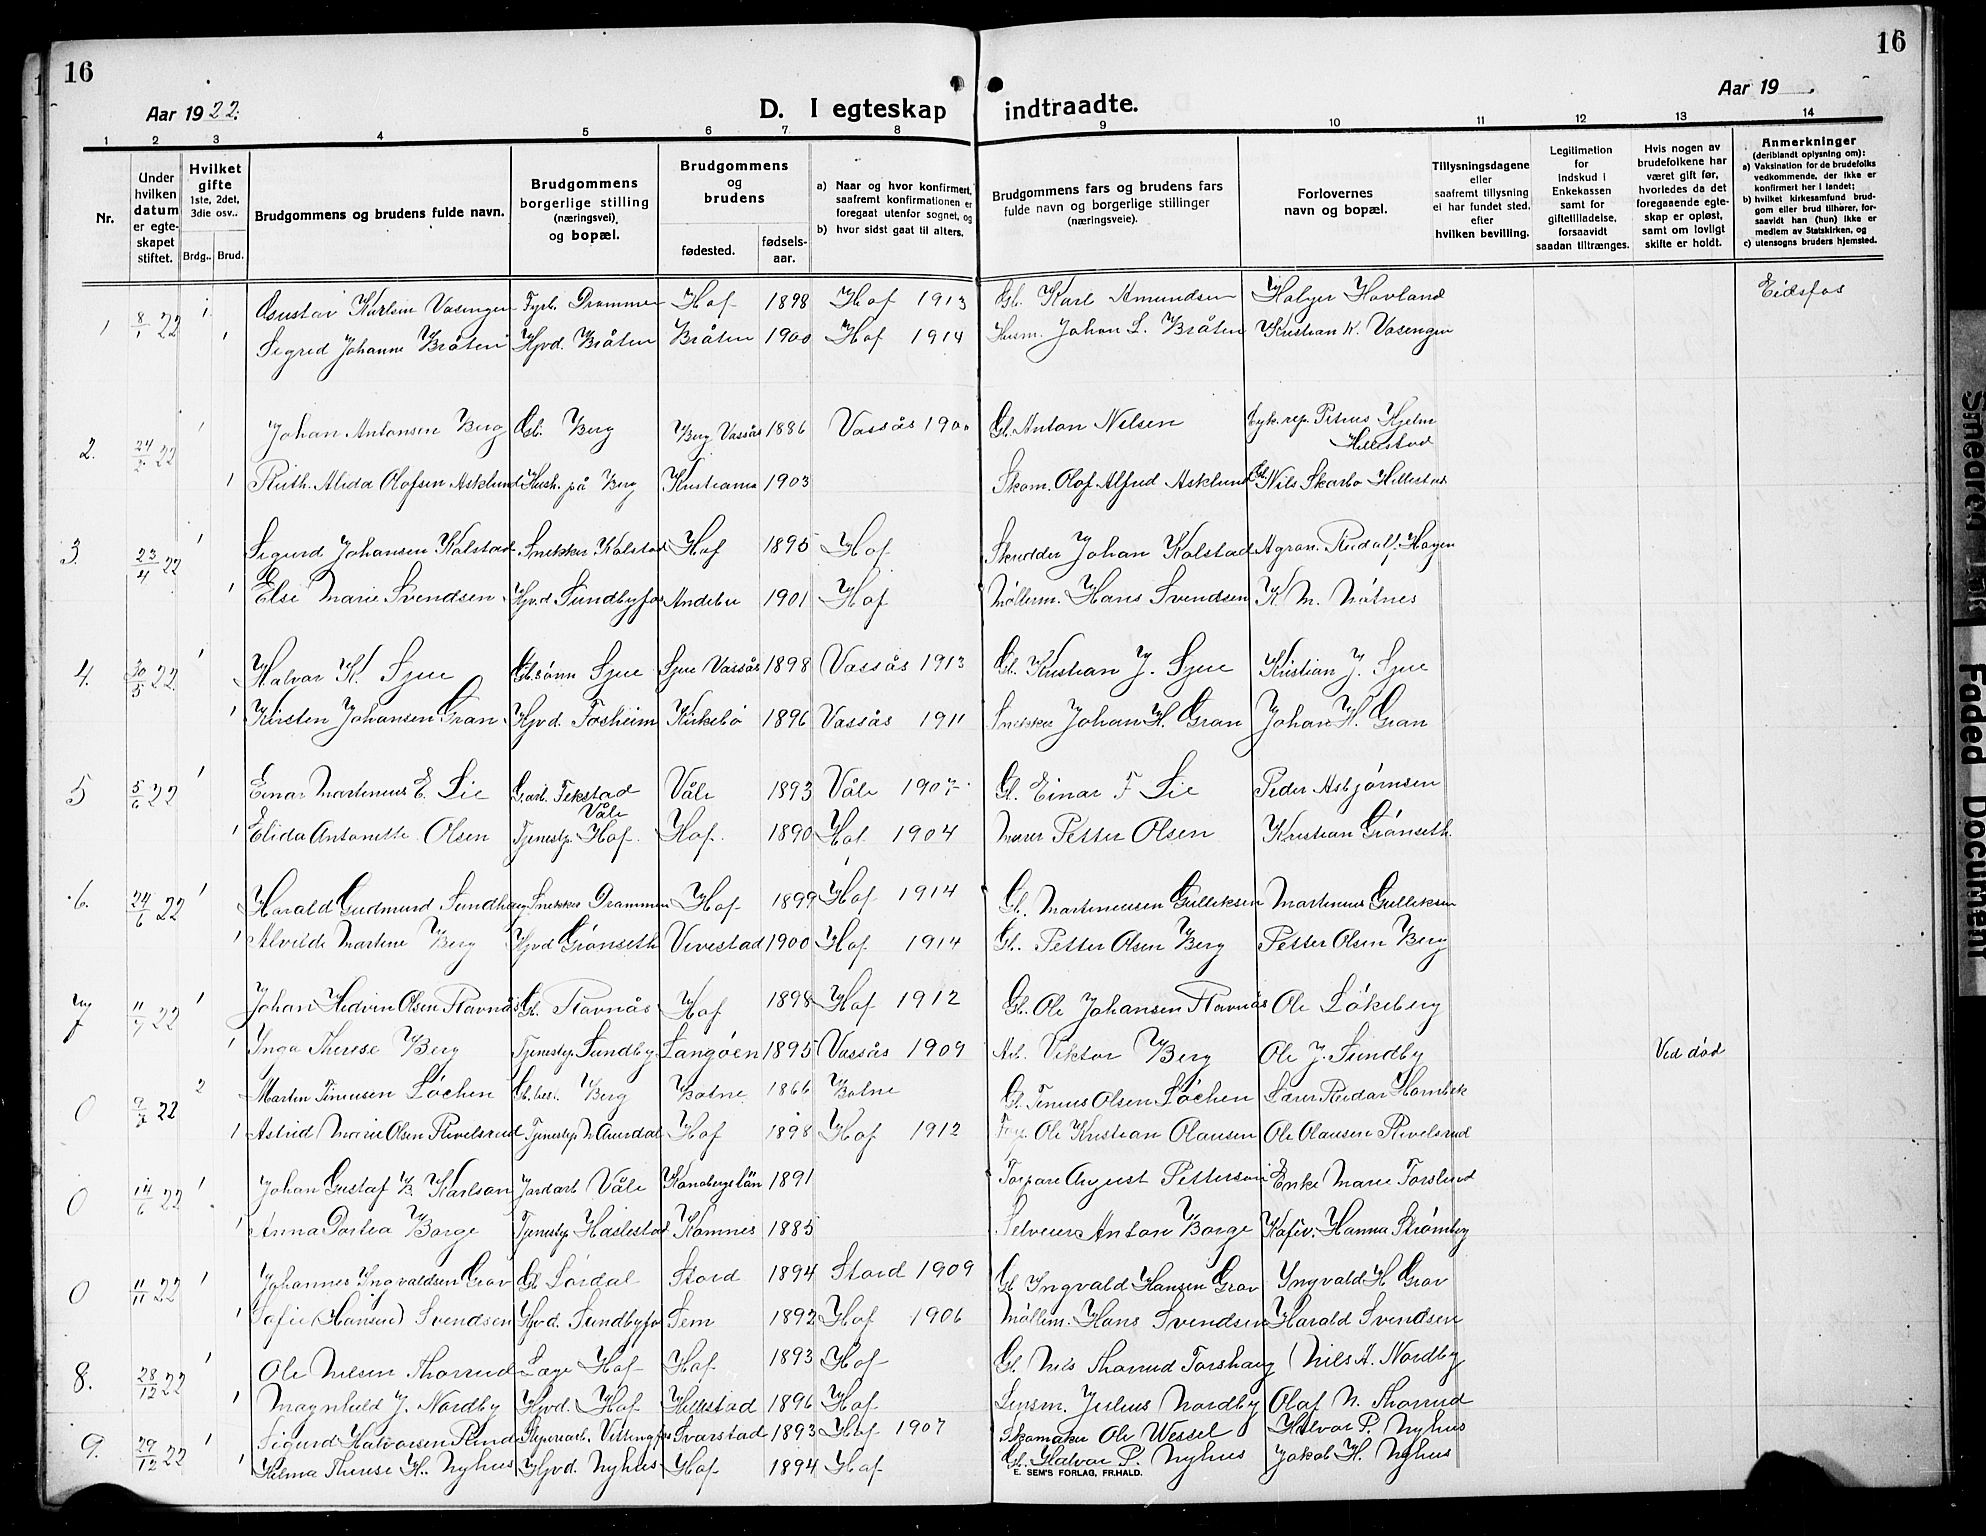 16
16
Aar 1922.
D. I egteskap indtraadte.
Aar 19
1 2 3 4 5 6 7 8 9 10 11 12 13 14
Nr.
Under hvilken datum er egte-skapet stiftet.
Hvilket gifte 1ste, 2det, 3die osv..
Brdg.. Brud.
Brudgommens og brudens fulde navn.
Brudgommens borgerlige stilling (næringsvei), og bopæl.
Brudgommens og brudens
fødested. fødsels-aar.
a) Naar og hvor konfirmert, saafremt konfirmationen er foregaat utenfor sognet, og
b) hvor sidst gaat til alters.
Brudgommens fars og brudens fars fulde navn og borgerlige stillinger (næringsveie).
Forlovernes navn og bopæl.
Tillysningsdagene eller saafremt tillysning ei har fundet sted, efter hvilken bevilling.
Legitimation for indskud i Enkekassen samt for giftetilladelse, forsaavidt saadan tiltrænges.
Hvis nogen av brudefolkene har været gift før, hvorledes da det foregaaende egte-skap er opløst, samt om lovligt skifte er holdt.
Anmerkninger
(deriblandt oplysning om):
a) Vaksination for de brudefolks vedkommende, der ikke er konfirmert her i landet;
b) hvilket kirkesamfund brud-gom eller brud tilhører, for-saavidt han (hun) ikke er medlem av Statskirken, og
c) utensogns bruders hjemsted.
1 8/1 22 1 Gustav Karlsen Vasengen Fyrb. Drammen Hof 1898 Hof 1913 Gb. Karl Amundsen Holger Hovland Eidsfos
1 Sigrid Johanne Bråten Hjvd. Bråten Bråten 1900 Hof 1914 Husm. Johan S. Bråten Kristian K. Vasengen
2. 24/2 22 1 Johan Antonsen Berg Gb. Berg Berg Vassås 1886 Vassås 1900 Gb. Anton Nilsen Cyk.rep. Petrus Hjelm Hillestad
1 Ruth Alida Olofsen Asklund Hush. på Berg Kristiania 1903 Skom. Olof Alfred Asklund Gb. Nils Skarbo Hillestad
3. 23/4 22 1 Sigurd Johansen Kolstad Snekker Kolstad Hof 1895 Hof Skrædder Johan Kolstad Agron. Rudolf Hagen
1 Else Marie Svendsen Hjvd Sundbyfos Andebu 1901 Hof Møllerm. Hans Svendsen K. M. Nøtnes
4. 30/5 22 1 Halvor K. Sjue Gb.sønn Sjue Sjue Vassås 1898 Vassås 1913 Gb. Kristian J. Sjue Kristian J. Sjue
1 Kirsten Johansen Gran Hjvd. Fosheim Kirkebø 1896 Vassås 1911 Snekker Johan H. Gran Johan H. Gran
5 5/6 22 1 Einar Martinius E. Lie Garb. Tekstad Våle Våle 1893 Våle 1907 Gb. Einar F Lie Peder Asbjørnsen
1 Elida Antonette Olsen Tjenestp. Hof. Hof. 1890 Hof 1904 Murer Petter Olsen Kristian Grønseth
6. 24/6 22 1 Harald Gudmund Sundhaug Snekker Drammen Hof 1899 Hof 1914 Gb. Martineusen Gulliksen Martinius Gulliksen
1 Alvilde Martine Berg Hjvd Grønseth Vivestad 1900 Hof 1914 Gb. Petter Olsen Berg Petter Olsen Berg
7 11/7 22 1 Johan Hedvin Olsen Ravnås Gb. Ravnås Hof 1898 Hof 1912 Gb. Ole Johansen Ravnås Ole Løkeberg
1 Inga Therese Berg Tjenestp. Sundby Langøen 1895 Vassås 1909 Arb. Viktor Berg Ole J. Sundby
0 22 2 Martin Tineusen Løchen Gb.bes. Berg Botne 1866 Botne Gb. Tineus Olsen Løchen Lærer Reidar Hornbek Ved død
1 Astrid Marie Olsen Rivelsrud Tjenestp. N. Aurdal Hof 1898 Hof 1912 Ole Kristian Olausen Ole Olausen Rivelsrud
0 14/6 22 1 Johan Gustaf B. Karlson Jordarb. Våle 1891 Torpare August Petterson Enke Marie Forslund
1 Anna Dortea Borge Tjenestp. Haslestad Komnes 1885 Selveier Anton Borge Kafév. Hanna Strømberg
0 11/11 22 1 Johannes Ingvaldsen Grov Gb. Sørdal Stord 1894 Stord 1909 Gb. Ingvald Hansen Grov Yngvald H Grov
1 Sofie (Hansine) Svendsen Hjvd. Sundbyfos Sem 1892 Hof 1906 Møllerm. Hans Svendsen Harald Svendsen
8. 28/12 22 1 Ole Nilsen Thorrud Læge Hof Hof 1893 Hof Gb. Nils Thorrud Forshaug Nils A. Nordby
1 Magnhild J. Nordby Hjvd. Hof Hillestad 1896 Hof Lensm. Julius Nordby Olaf N. Thorrud
9. 29/12 22 1 Sigurd Halvorsen Rund Sliperiarb. Vittingfos Svarstad 1893 Hof 1907 Skomaker Ole Wessel Halvor P. Nyhus
1 Hilma Therese H. Nyhus Hjvd. Nyhus Hof 1894 Hof Gb. Halvor P. Nyhus Jakob H. Nyhus
E. SEM'S FORLAG, FR.HALD.
Smeared Ink
Faded Document